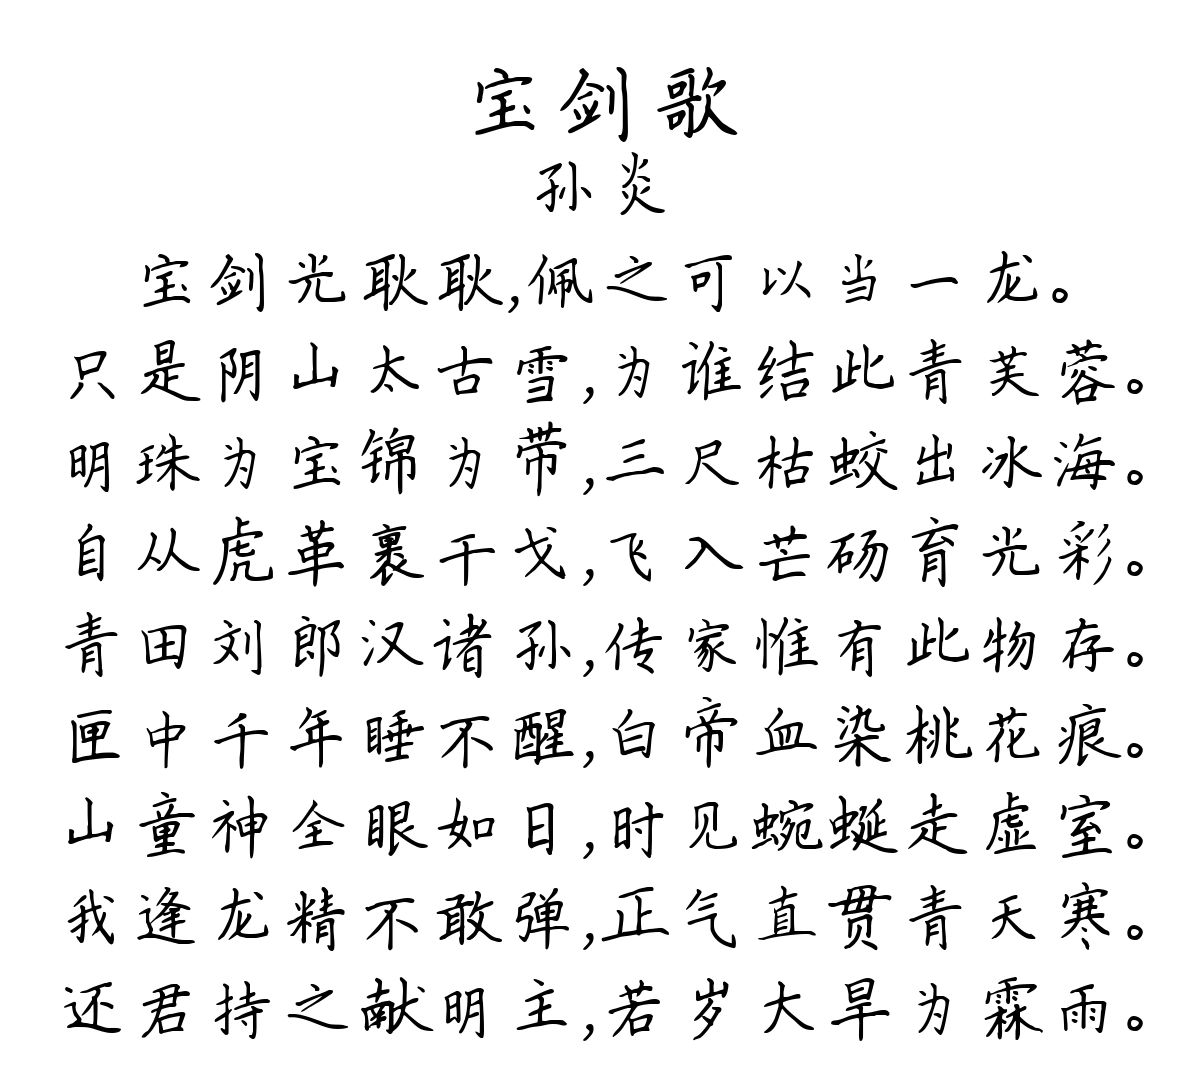 宝剑歌
孙炎
宝剑光耿耿,佩之可以当一龙。
只是阴山太古雪,为谁结此青芙蓉。
明珠为宝锦为带,三尺枯蛟出冰海。
自从虎革裹干戈,飞入芒砀育光彩。
青田刘郎汉诸孙,传家惟有此物存。
匣中千年睡不醒,白帝血染桃花痕。
山童神全眼如日,时见蜿蜒走虚室。
我逢龙精不敢弹,正气直贯青天寒。
还君持之献明主,若岁大旱为霖雨。